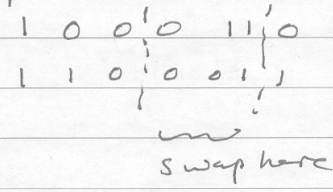 1 0 0 0 1 1 0
1 1 0 0 0 1 1
swap here